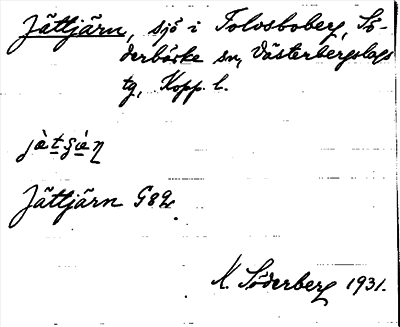 Jättjärn, sjö i Tolvsboberg, Sö-
derbärke sn, Västerbergslags
tg, Kopp. l.
Jättjärn G82
K. Söderberg 1931.